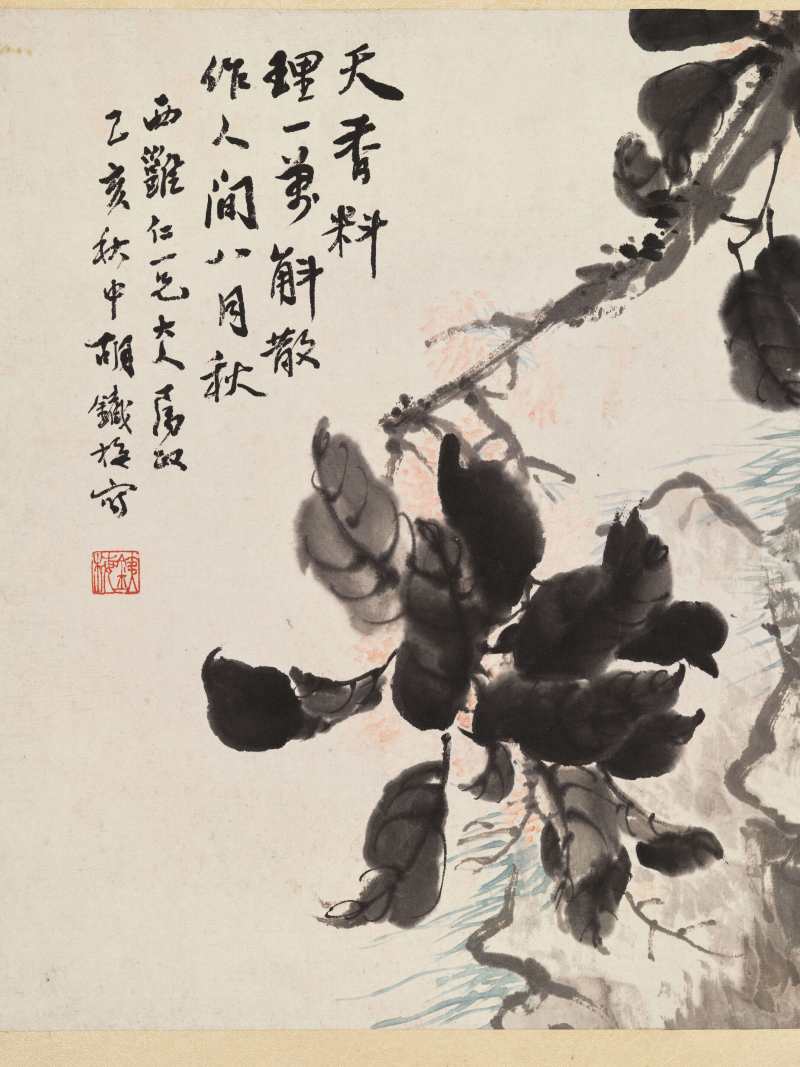 天香料
理一萬斛散
作人間八月秋
西仁兄大人属政
乙亥秋中胡鐵梅寫
鐵梅